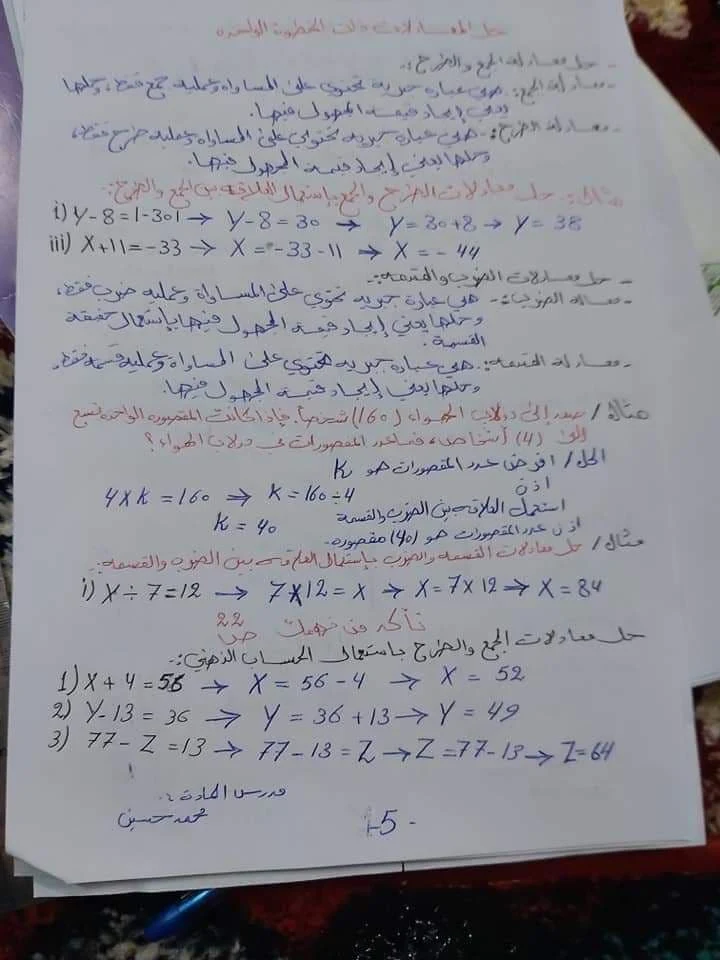 حل المعادلات ذات الخطوة الواحده
- حل معادلة الجمع والطرح :-
- معادلة الجمع: هي عباره جبريه تحتوي على المساواة وعمليه جمع فقط، وحلها
يعني إيجاد قيمة المجهول فيها.
- معادلة الطرح :- هي عباره جبريه تحتوي على المساواة وعمليه طرح فقط،
وحلها يعني إيجاد قيمة المجهول فيها.
مثال: حل معادلات الطرح والجمع بإستعمال العلاقة بين الجمع والطرح:-
i) Y-8=|-30| → Y-8=30 → Y=30+8 → Y=38
iii) X+11=-33 → X=-33-11 → X=-44
- حل معادلات الضرب والقسمه:-
- معادلة الضرب:- هي عباره جبريه تحتوي على المساواة وعمليه ضرب فقط،
وحلها يعني إيجاد قيمة المجهول فيها بإستعمال
القسمة.
- معادلة القسمه: هي عباره جبريه تحتوي على المساواة وعملية قسمه فقط،
وحلها يعني إيجاد قيمة المجهول فيها.
مثال/ صعد إلى دولاب الهواء (160) شخصاً. فإذا كانت المقصوره الواحده تسع
إلى (4) أشخاص، فما عدد المقصورات في دولاب الهواء؟
الحل/ افرض عدد المقصورات هو K
اذن
4×K=160 → K=160÷4
استعمل العلاقه بين الضرب والقسمة
K=40
اذن عدد المقصورات هو (40) مقصوره.
مثال/ حل معادلات القسمه والضرب بإستعمال العلاقه بين الضرب والقسمه:-
i) X÷7=12 → 7×12=X → X=7×12 → X=84
تأكد من فهمك ص 22
حل معادلات الجمع والطرح باستعمال الحساب الذهني:-
1) X+4=56 → X=56-4 → X=52
2) Y-13=36 → Y=36+13 → Y=49
3) 77-Z=13 → 77-13=Z → Z=77-13 → Z=64
مدرس المادة :
محمد حسين
-5-